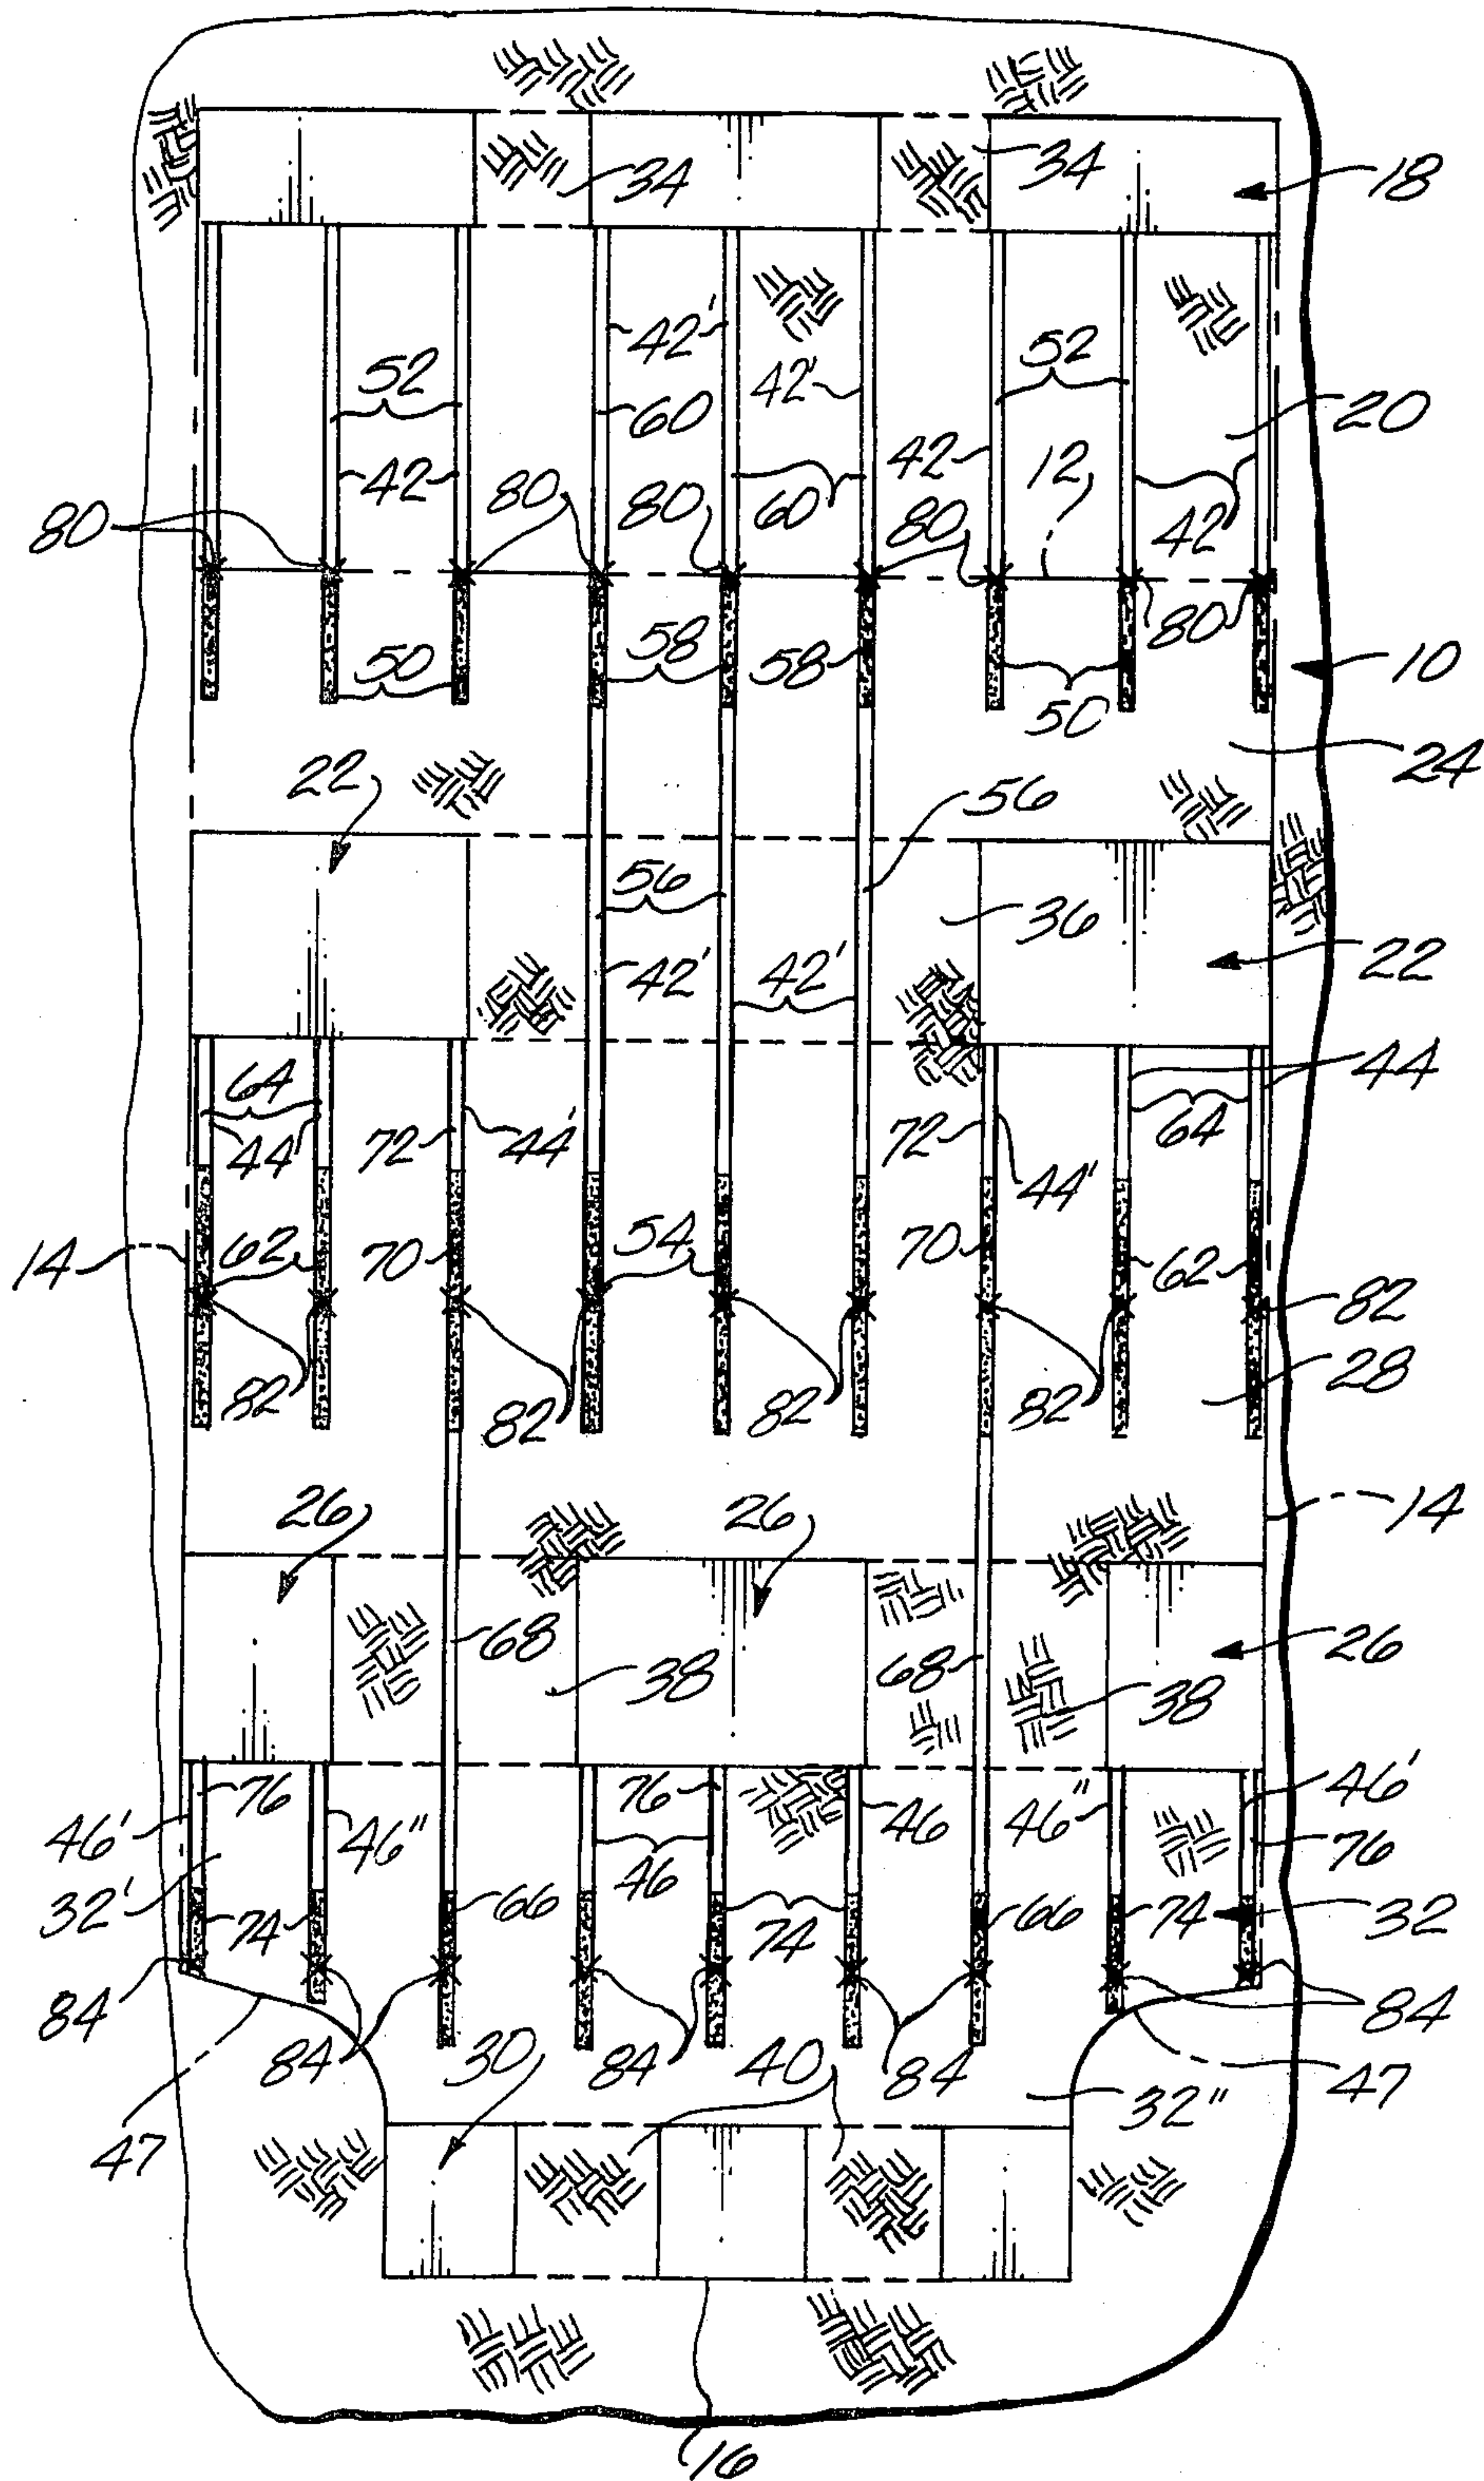 34
34
18
42'
52
42'
52
60
20
42
42
12
80
80
80
60
80
42
80
50
58
58
50
10
24
22
56
56
36
22
42'
42'
64
44
44'
72
44'
72
44'
64
62
70
54
70
62
14
82
82
82
82
82
28
26
26
14
68
38
68
38
26
76
76
46'
46"
46
46"
46'
76
32'
46
74
66
74
66
74
32
84
84
84
84
84
30
40
47
32"
47
16